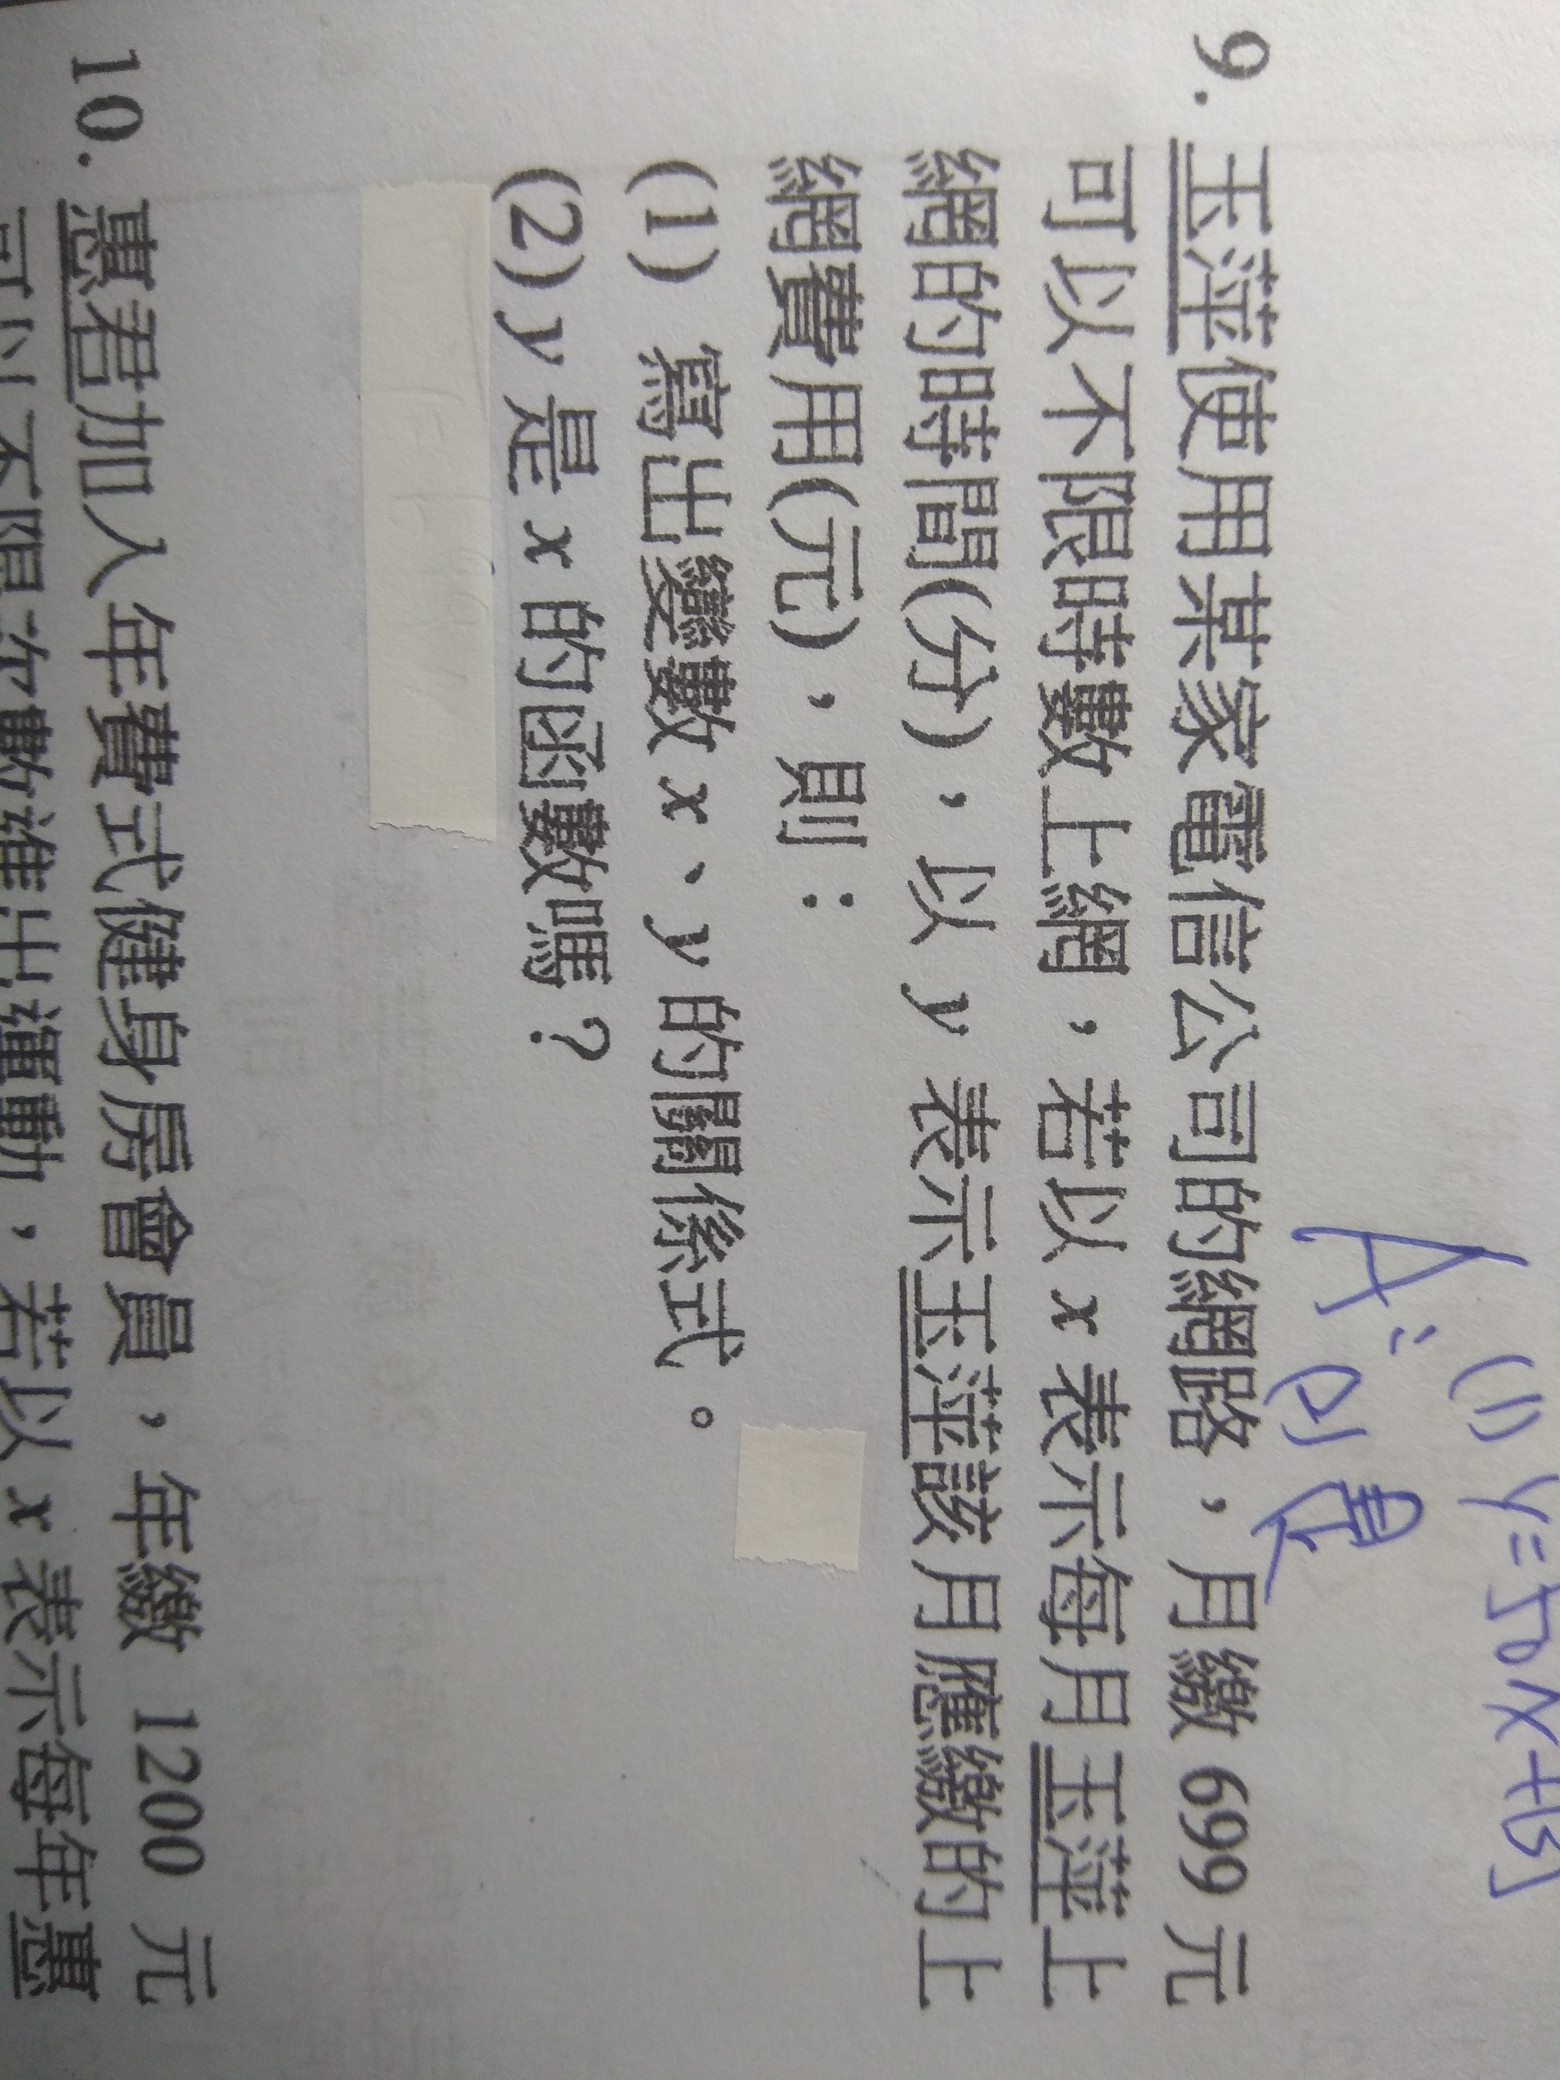 (1) y=50x+135
A: (2)是
9. 玉萍使用某家電信公司的網路，月繳 699 元
可以不限時數上網，若以 x 表示每月玉萍上
網的時間(分)，以 y 表示玉萍該月應繳的上
網費用(元)，則：
(1) 寫出變數 x、y 的關係式。
(2) y 是 x 的函數嗎？
10. 惠君加入年費式健身房會員，年繳 1200 元
可以不限次數進出運動，若以 x 表示每年惠